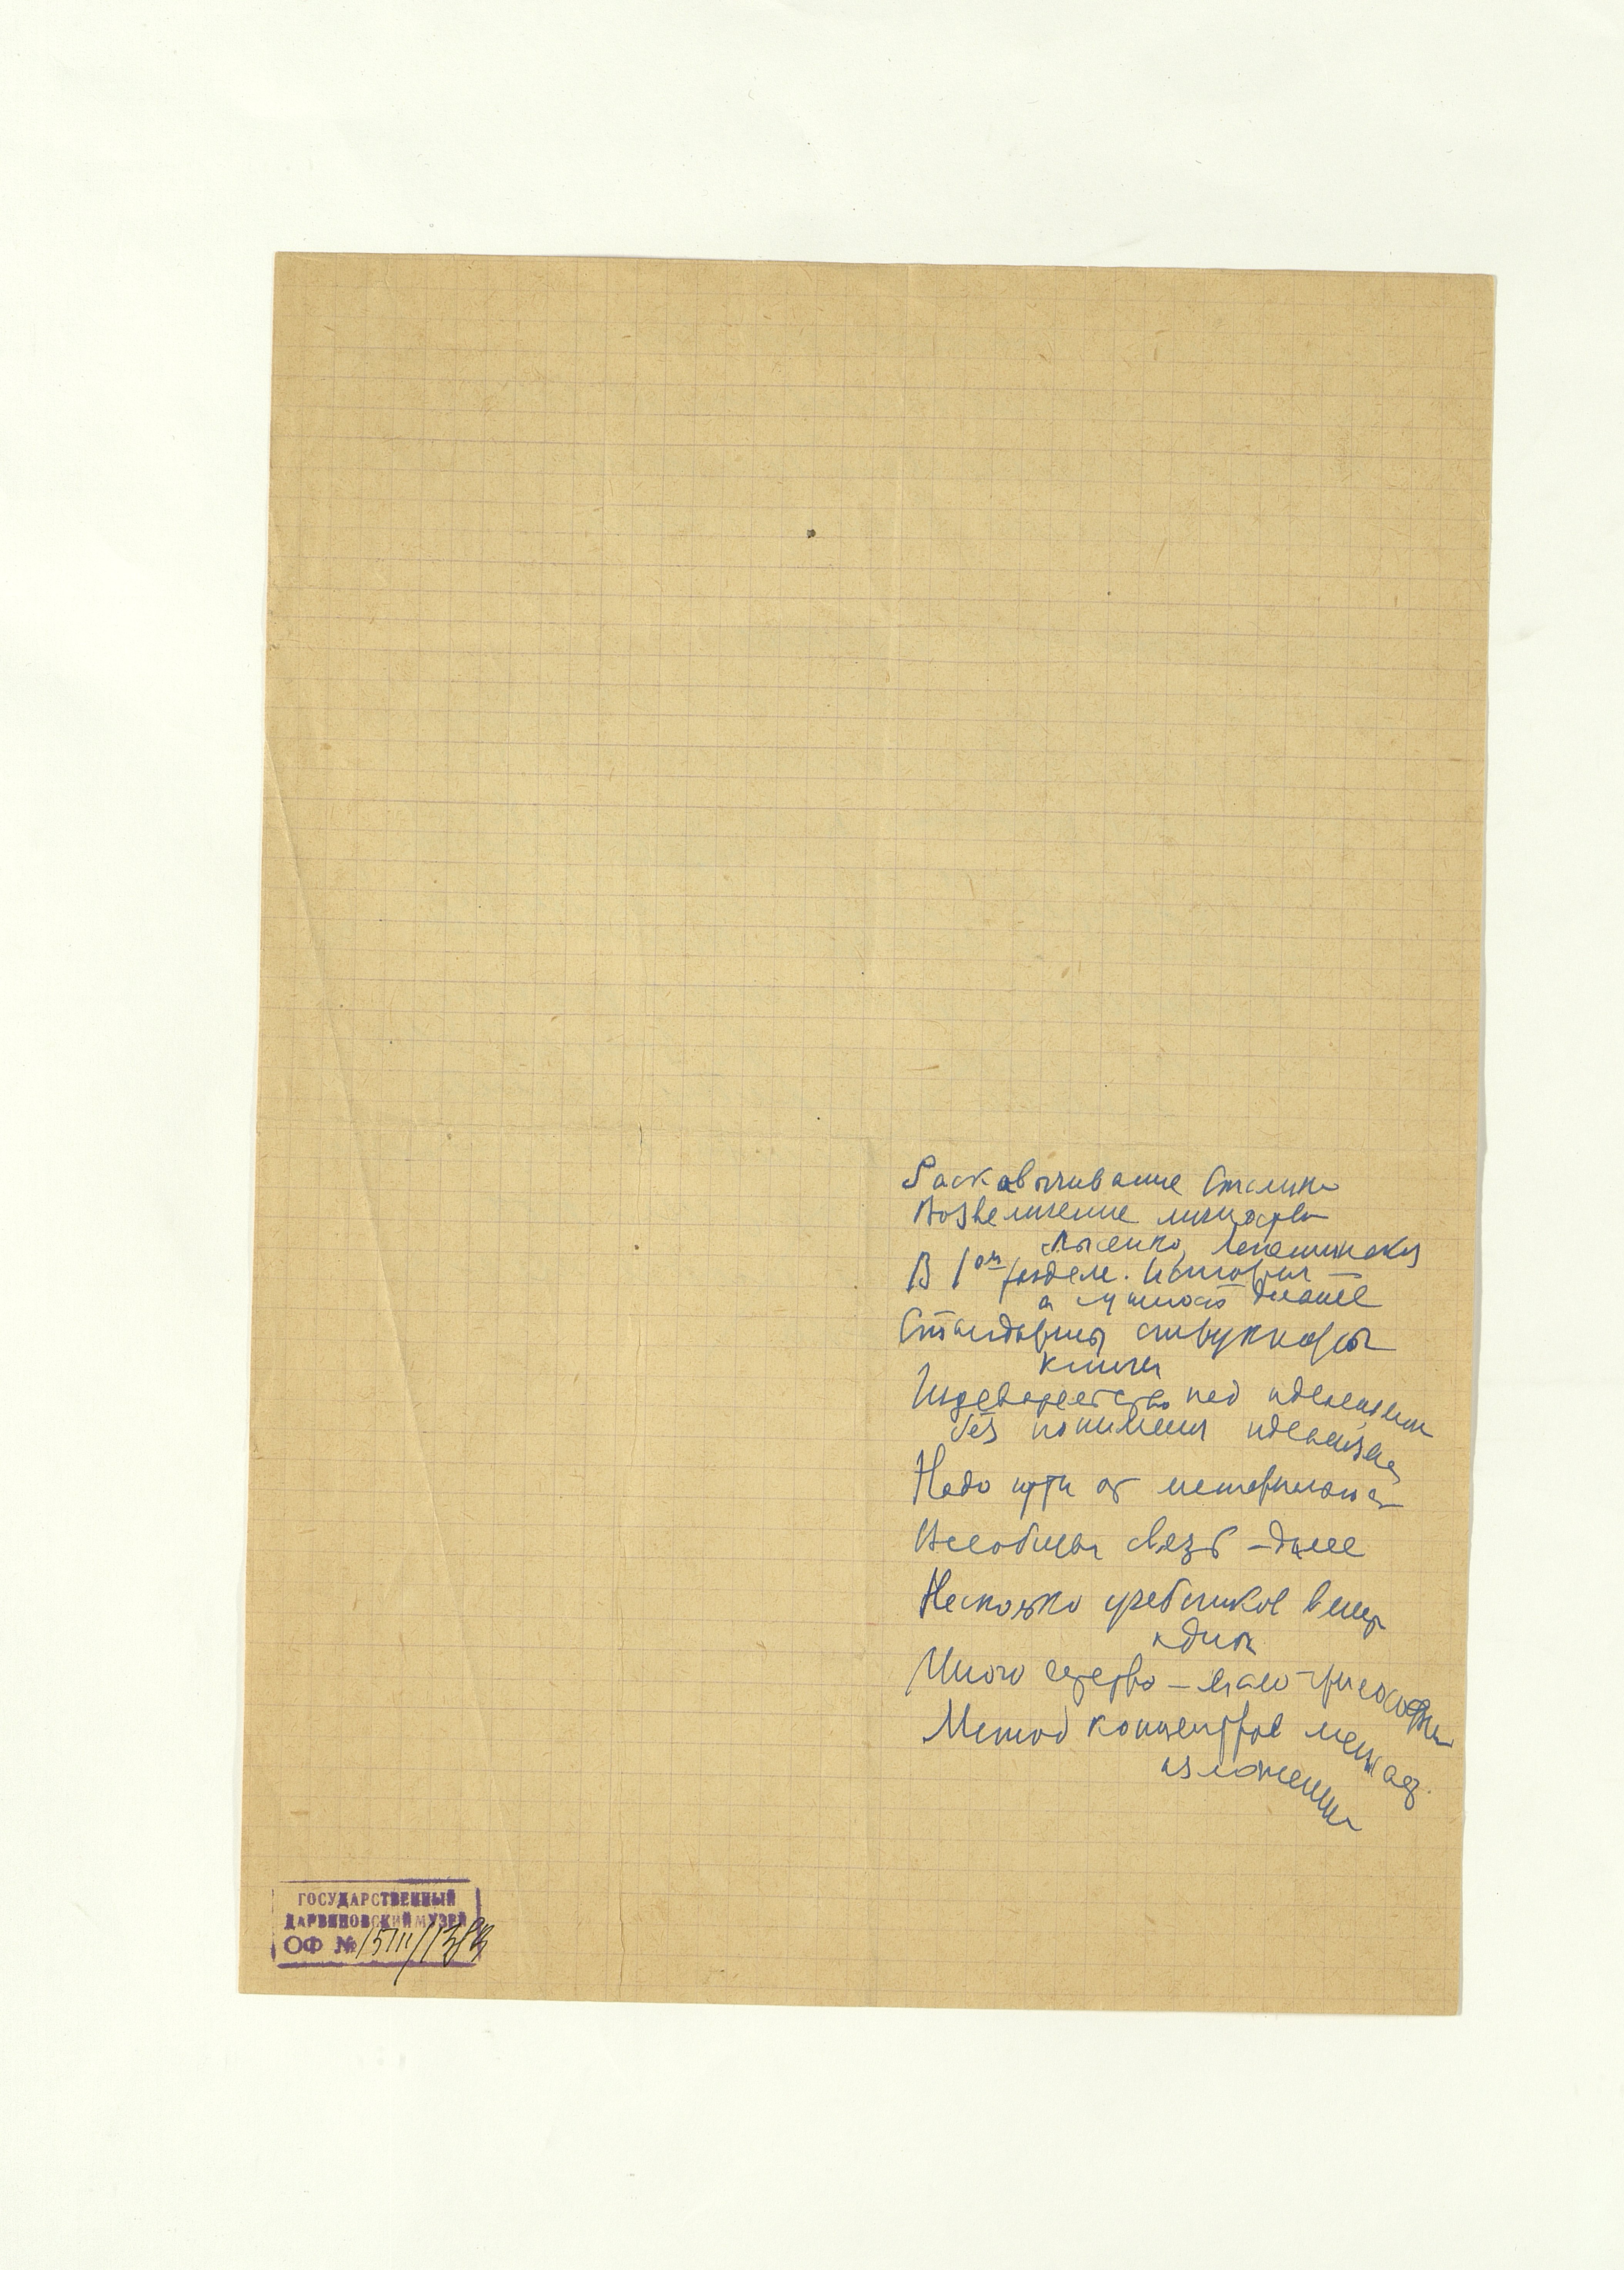 Раскавычивание Сталина
Возвеличение личности
Лысенко, Лепешинская
В 1ом разделе. История
а сущность далее
Стандартная структура
книги
Издевательство над идеализмом
без понимания идеализма
Надо идти от материала
Всеобщая связь – далее
Несколько учебников
один
Много – мало философии
Метод концентров
изложения
ГОСУДАРСТВЕННЫЙ
ДАРВИНОВСКИЙ МУЗЕЙ
ОФ №